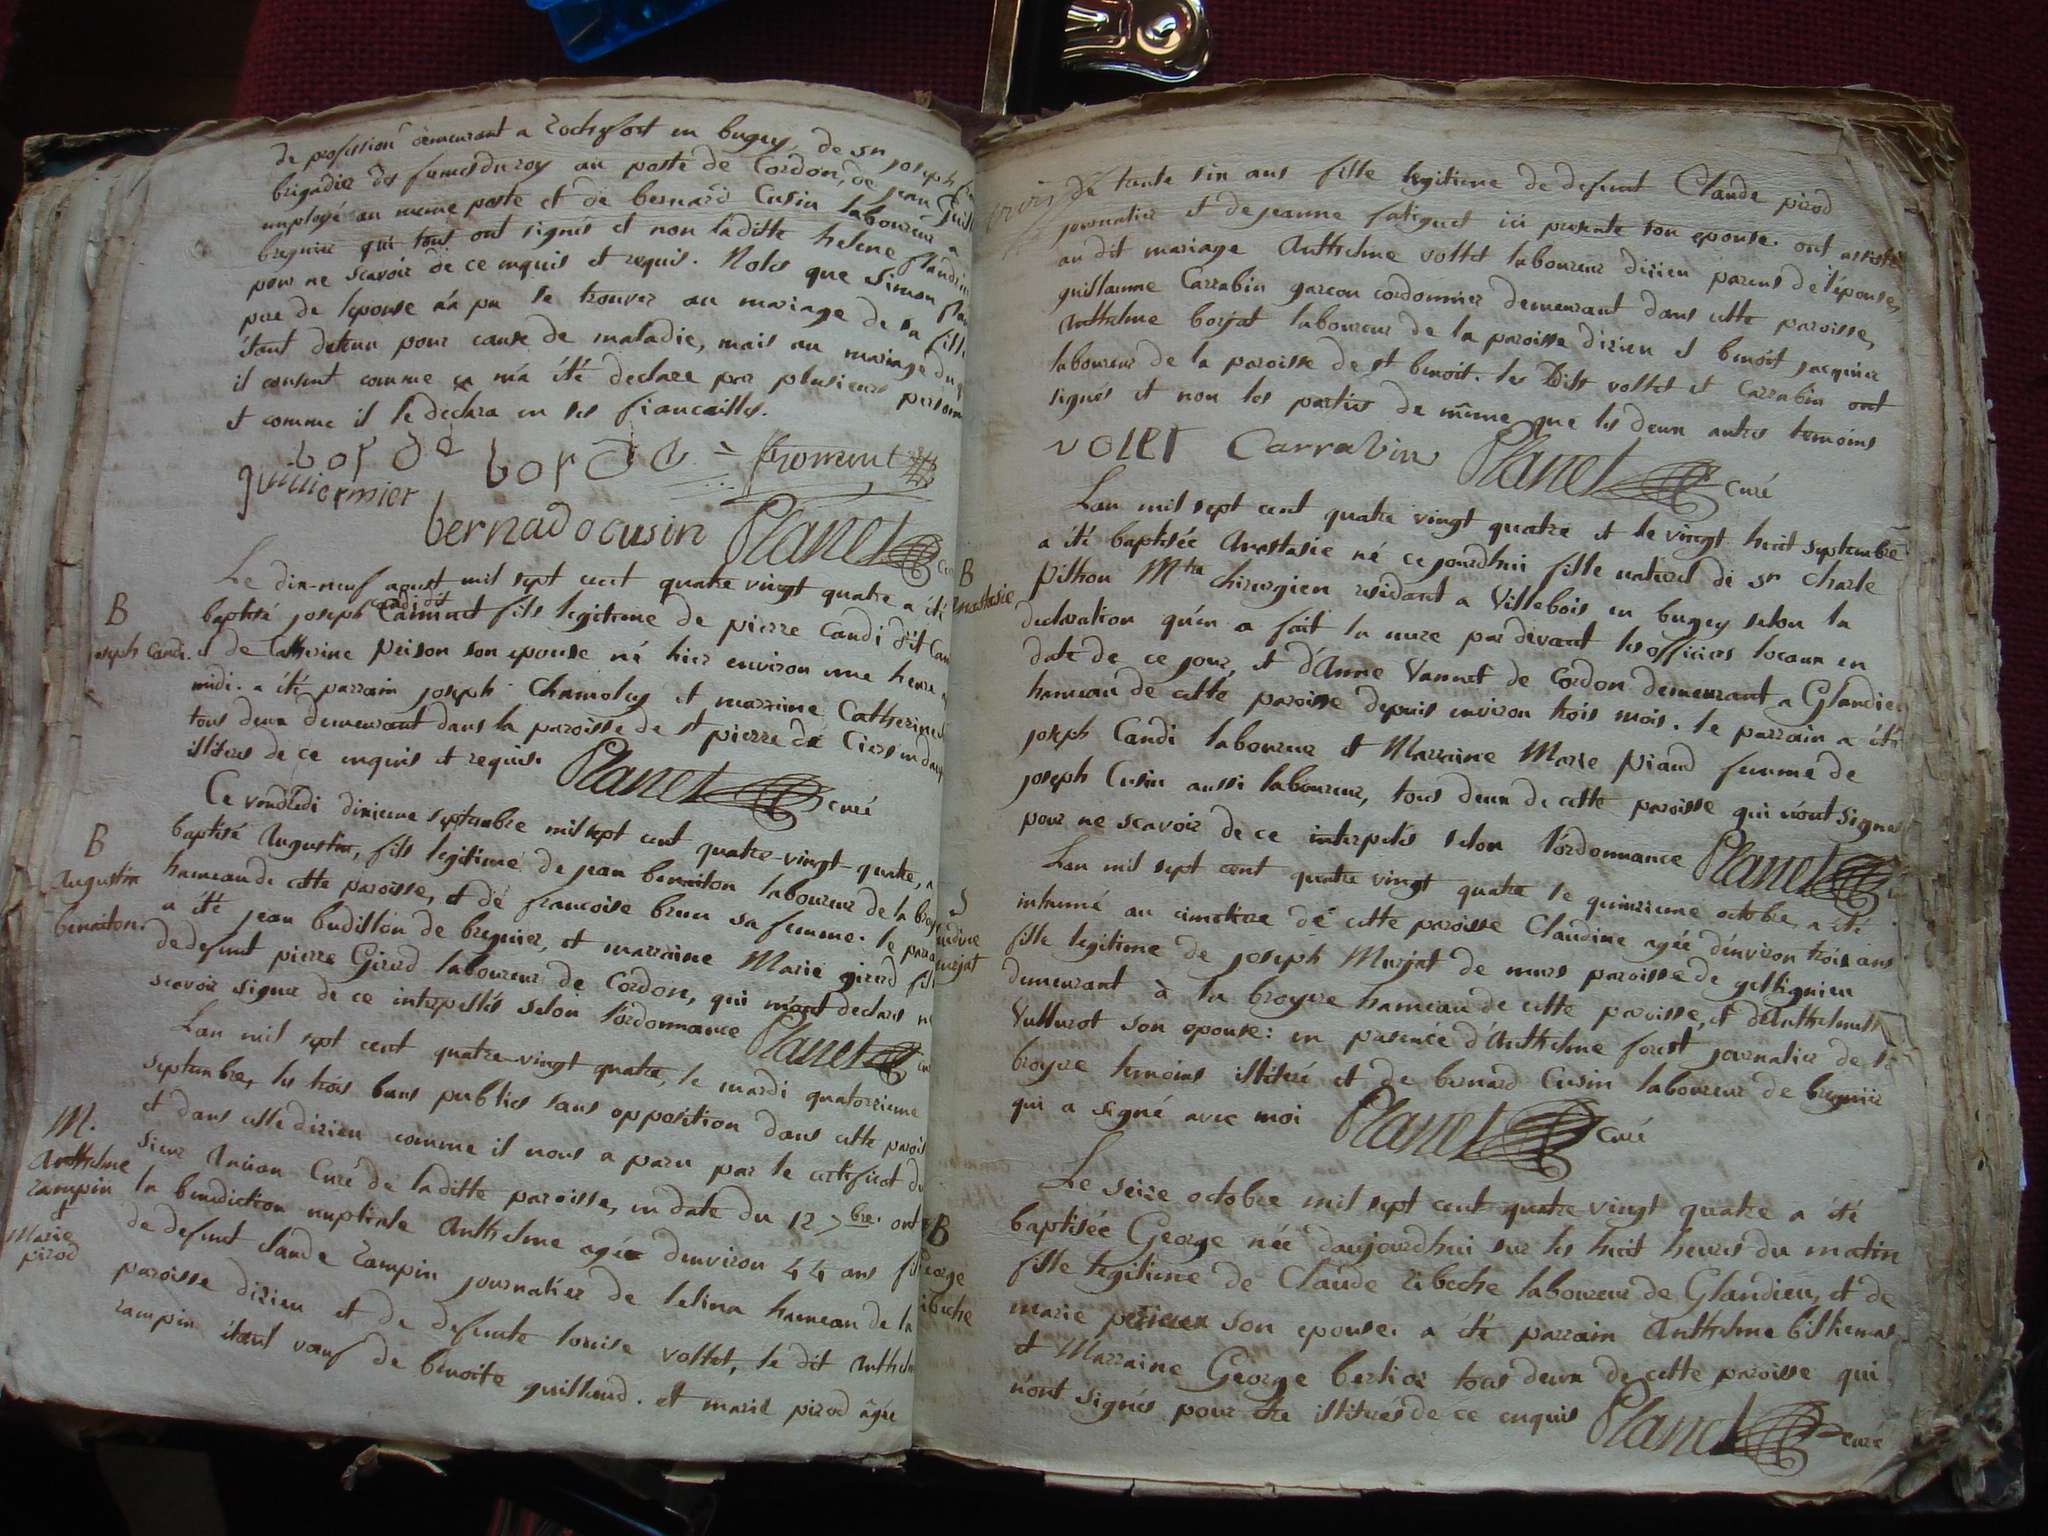 de profession demeurant a rochefort en bugey, de sr joseph
brigadier des fermes du roy au poste de Cordon, de jean
employé au meme poste et de bernard Cusin laboureur a
bregnier qui tous ont signés et non laditte helene flandrin
pour ne scavoir de ce enquis et requis. Notes que Simon
pere de lepouse n'a pu se trouver au mariage de sa fille
étant detenu pour cause de maladie, mais au mariage du
il consent comme ça m'a été declare par plusieurs
et comme il le declara en ses fiancailles.
froment
guilliermier
bernadocusin Planet
Le dix-neuf aoust mil sept cent quatre vingt quatre a été
candi dit
baptisé joseph fils legitime de pierre Candi dit
B
joseph Candi.
et de Catherine peison son epouse né hier environ une heure
midi. a été parrain joseph Chamoley et marraine Catherine
tous deux demeurant dans la paroisse de st pierre de
illiteres de ce enquis et requis. Planet curé
Ce vendredi dixieme septembre mil sept cent quatre-vingt-quatre, a
B
Augustin
benoiton.
baptisé Augustin, fils legitime de jean benoiton laboureur de la
hameau de cette paroisse, et de francoise brun sa femme. le
a été jean budillon de bregnier, et marraine Marie girod
de defunt pierre Girod laboureur de Cordon, qui m'ont declarés
scavoir signer de ce interpellés selon l'ordonnance Planet
Lan mil sept cent quatre-vingt quatre, le mardi quatorzieme
septembre, les trois bans publiés sans opposition dans cette
et dans celle dizieu comme il nous a paru par le certificat du
M.
Anthelme
rampin
et
Marie
pirod
sieur Curé de laditte paroisse, en date du 12 7bre. ont
la benediction nuptiale Anthelme agée denviron 44 ans
de defunt claude rampin journalier de hameau de la
paroisse dizieu et de defunte louise vollet, le dit
rampin étant veuf de benoite guilland. et marie pirod âgée
de trente six ans fille legitime de defunt Claude pirod
journalier et de jeanne ici presente son epouse. ont assisté
au dit mariage Anthelme vollet laboureur dizieu parens de l'épouse,
guillaume Carrabin garcon cordonnier demeurant dans cette paroisse,
Anthelme borjat laboureur de la paroisse dizieu et benoit jacquier
laboureur de la paroisse de st benoit. les dits vollet et Carrabin ont
signés et non les parties de même que les deux autres temoins
volet Carrabin Planet curé
Lan mil sept cent quatre vingt quatre et le vingt huit septembre
B
anastasie
a été baptisée Anastasie né ce jourdhui fille naturel de sr Charle
pithon Mtre chirurgien residant a Villebois en bugey selon la
declaration qu'en a fait la mere par devant les officiers locaux en
date de ce jour, et d'Anne Vannet de Cordon demeurant a Glandieu
hameau de cette paroisse depuis environ trois mois. le parrain a été
joseph Candi laboureur et Marraine Marie piaud femme de
joseph Cusin aussi laboureur, tous deux de cette paroisse qui n'ont signés
pour ne scavoir de ce interpelés selon l'ordonnance Planet
Lan mil sept cent quatre vingt quatre le quinzieme octobre, a été
inhumé au cimetiere de cette paroisse Claudine agée d'environ trois ans
fille legitime de joseph Murjat de murs paroisse de
demeurant à la broyre hameau de cette paroisse, et
son epouse: en presence d'Anthelme forest journalier de la
broyre temoins illiteré et de bernard Cusin laboureur de bregnier
qui a signé avec moi Planet Curé
Le seize octobre mil sept cent quatre vingt quatre a été
B
George
ribeche
baptisée George née daujourdhui sur les huit heures du matin
fille legitime de Claude ribeche laboureur de Glandieu, et de
marie son epouse. a été parrain Anthelme
et Marraine George berlioz tous deux de cette paroisse qui
n'ont signés pour etre illiterés de ce enquis Planet curé